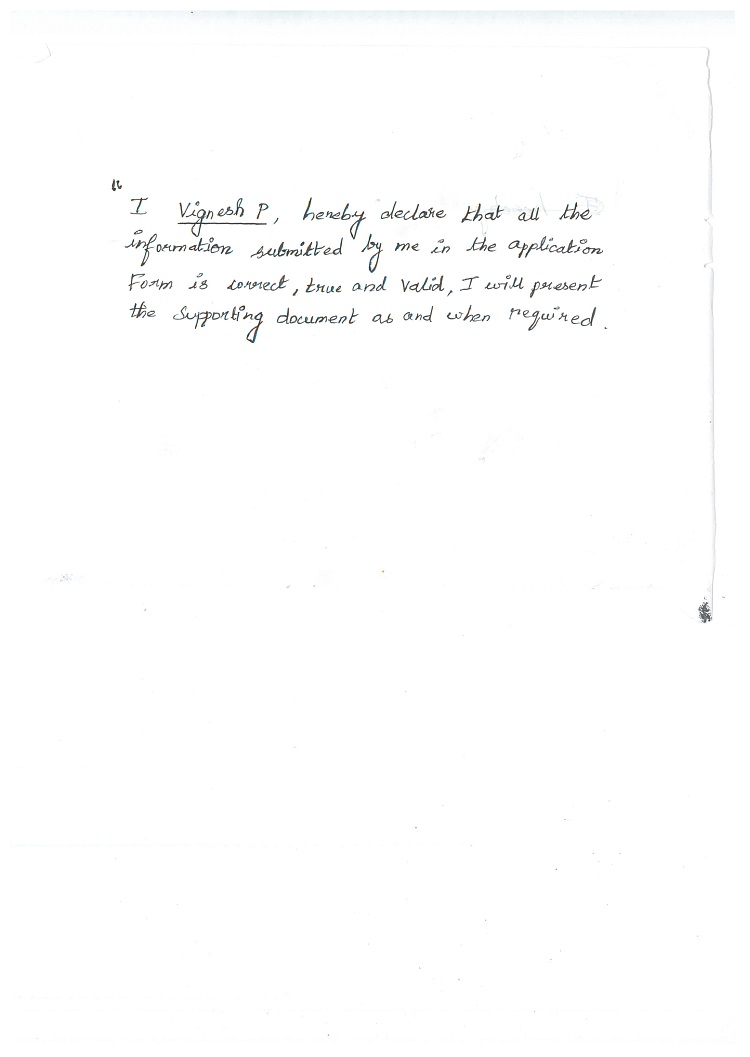 "
I Vignesh P, hereby declare that all the
information submitted by me in the application
Form is correct, true and valid, I will present
the Supporting document as and when required.